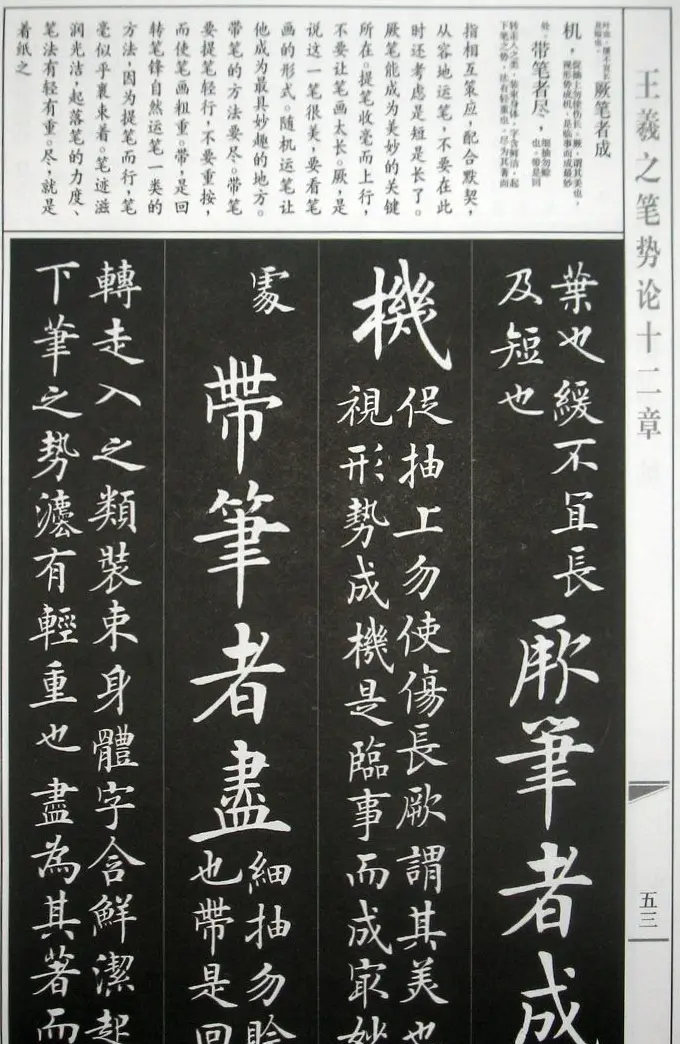 王羲之笔势论十二章
五三
叶也,缓不宜长
及短也。
厥笔者成
机,
促抽上勿使伤长,厥,谓其美也,
视形势成机,是临事而成最妙
处。带笔者尽,
细抽勿赊
也,带是回
转走入之类,装束身体,字含鲜洁,起
下笔之势,法有轻重也,尽为其著而
指相互策应,配合默契,
从容地运笔,不要在此
时还考虑是短是长了。
厥笔能成为美妙的关键
所在。提笔收毫而上行,
不要让笔画太长。厥,是
说这一笔很美,要看笔
画的形式。随机运笔让
他成为最具妙趣的地方。
带笔的方法要尽。带笔
要提笔轻行,不要重按,
而使笔画粗重。带,是回
转笔锋自然运笔一类的
方法,因为提笔而行,笔
毫似乎裹束着。笔迹滋
润光洁,起落笔的力度、
笔法有轻有重。尽,就是
着纸之
葉也緩不宜長
及短也
厥筆者成
機
促抽上勿使傷長厥謂其美也
視形勢成機是臨事而成最妙
處
帶筆者盡
細抽勿賒
也帶是回
轉走入之類裝束身體字含鮮潔起
下筆之勢灋有輕重也盡為其著而